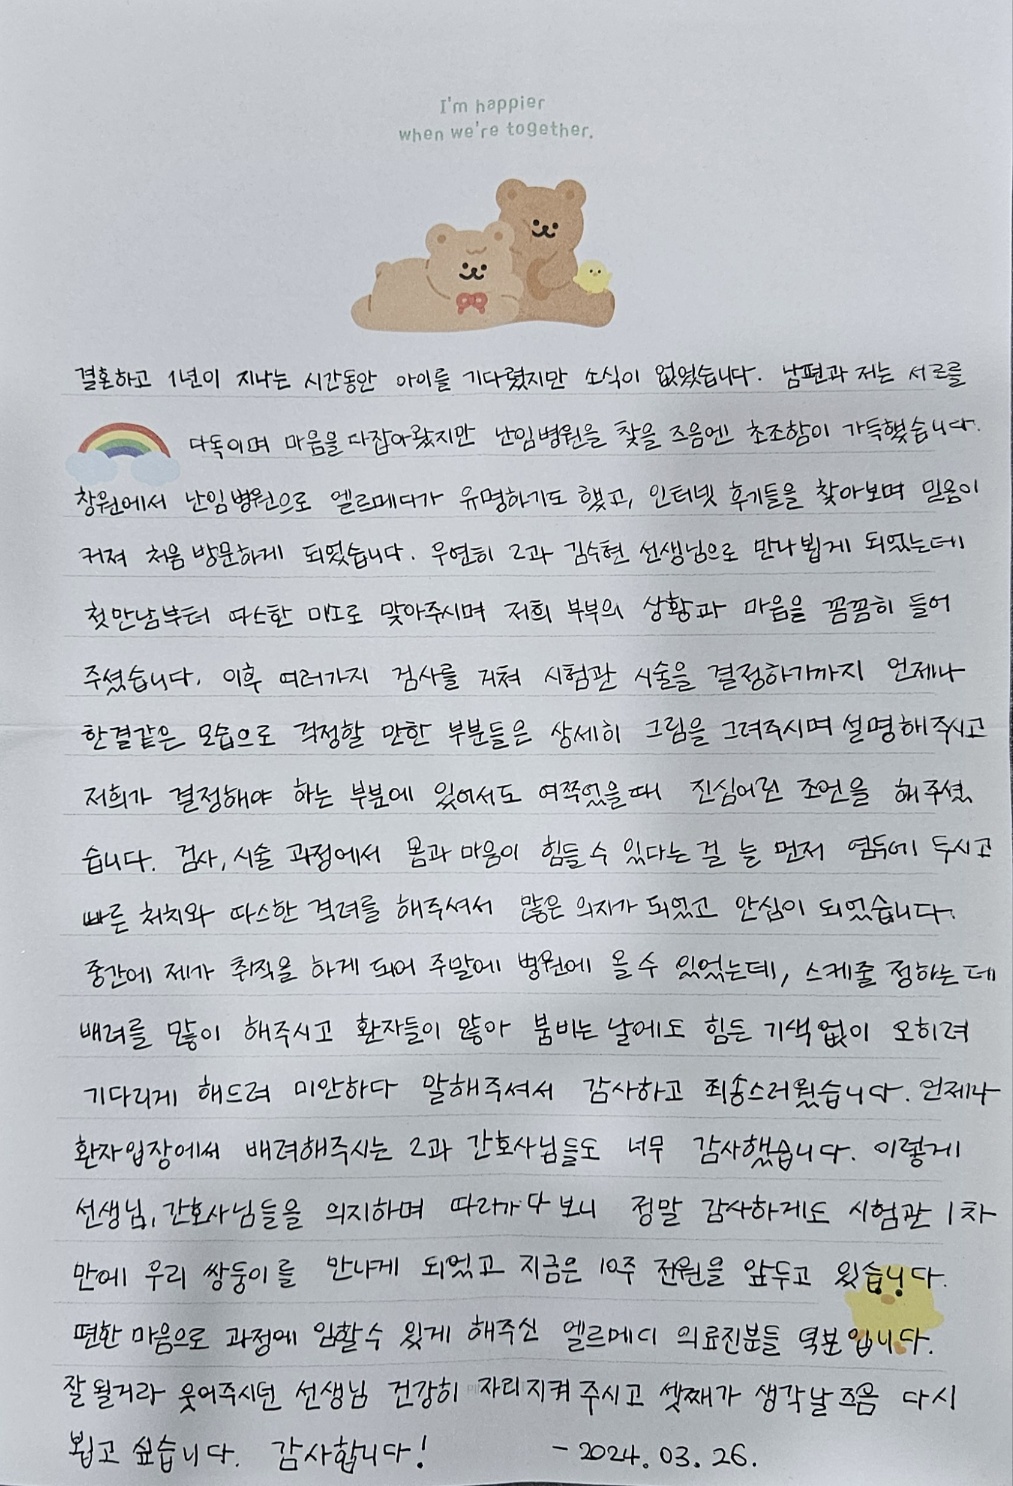 I'm happier
when we're together.
결혼하고 1년이 지나는 시간동안 아이를 기다렸지만 소식이 없었습니다. 남편과 저는 서로를
다독이며 마음을 다잡아왔지만 난임병원을 찾을 즈음엔 초조함이 가득했습니다.
창원에서 난임병원으로 엘르메디가 유명하기도 했고, 인터넷 후기들을 찾아보며 믿음이
커져 처음 방문하게 되었습니다. 우연히 2과 김수현 선생님으로 만나뵙게 되었는데
첫만남부터 따스한 미소로 맞아주시며 저희 부부의 상황과 마음을 꼼꼼히 들어
주셨습니다. 이후 여러가지 검사를 거쳐 시험관 시술을 결정하기까지 언제나
한결같은 모습으로 걱정할 만한 부분들은 상세히 그림을 그려주시며 설명해주시고
저희가 결정해야 하는 부분에 있어서도 여쭈었을때 진심어린 조언을 해주셨
습니다. 검사, 시술 과정에서 몸과 마음이 힘들 수 있다는 걸 늘 먼저 염두에 두시고
빠른 처치와 따스한 격려를 해주셔서 많은 의지가 되었고 안심이 되었습니다.
중간에 제가 취직을 하게 되어 주말에 병원에 올 수 있었는데, 스케줄 정하는데
배려를 많이 해주시고 환자들이 많아 붐비는 날에도 힘든 기색 없이 오히려
기다리게 해드려 미안하다 말해주셔서 감사하고 죄송스러웠습니다. 언제나
환자입장에서 배려해주시는 2과 간호사님들도 너무 감사했습니다. 이렇게
선생님, 간호사님들을 의지하며 따라가다 보니 정말 감사하게도 시험관 1차
만에 우리 쌍둥이를 만나게 되었고 지금은 10주 전원을 앞두고 있습니다.
편한 마음으로 과정에 임할 수 있게 해주신 엘르메디 의료진분들 덕분입니다.
잘 될거라 웃어주시던 선생님 건강히 자리지켜 주시고 셋째가 생각날 즈음 다시
뵙고 싶습니다. 감사합니다! - 2024. 03. 26.